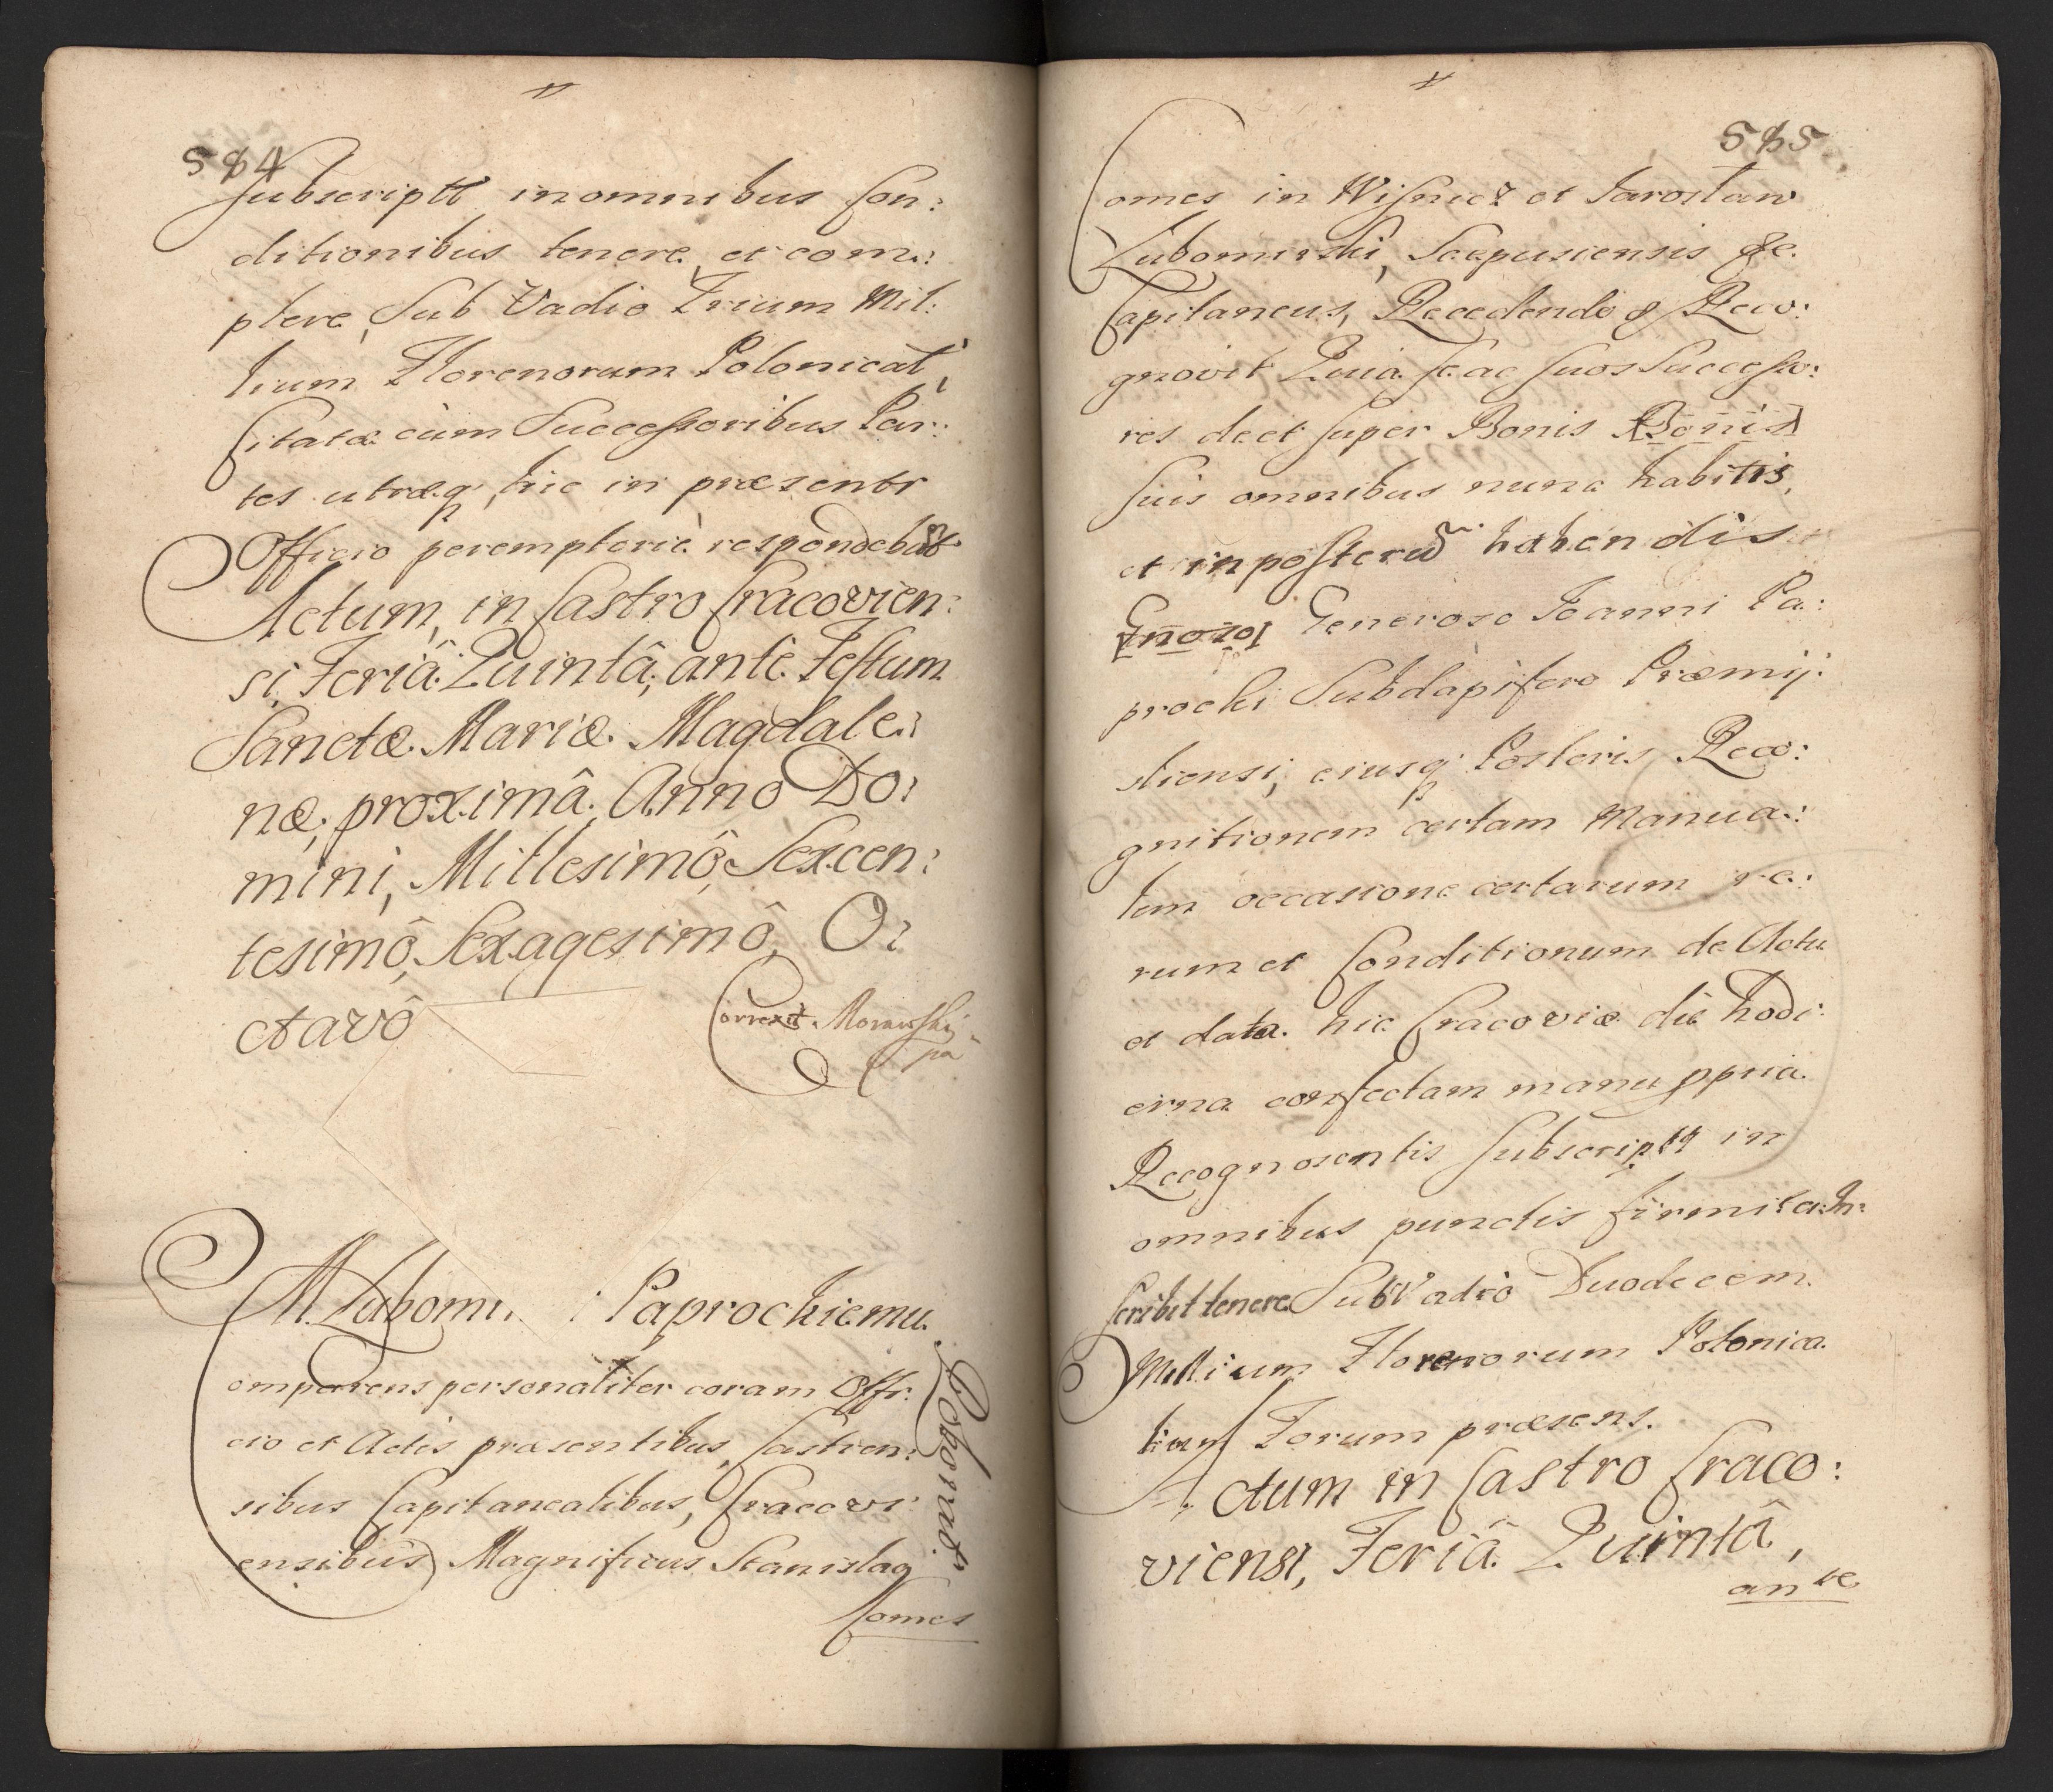 584
subscriptt in omnibus Con:
ditionibus tenere et com:
plere, Sub Vadio Trium Mil:
lium Florenorum Polonicał,
Citatæ cùm Successoribus Par:
tes utræq, hic in præsenti
Officio peremptoriè respondebūt
Actum, in Castro Cracovien:
si, Feriâ Quintâ, ante Festum
Sanctæ Mariæ Magdale:
næ, proximâ, Anno Do:
mini, Millesimô Sexcen:
tesimô, Sexagesimô, O:
ctavô
Correxit Morawski
pa
M. Lubomi. Paprockiemu.
omparens personaliter coram Offi:
cio et Actis præsentibus, Castren:
sibus Capitanealibus, Cracovi:
ensibus Magnificus Stanislaq
Roborat
Comes
585
Comes in Wisnicz et Jarosław
Lubomirski, Scepusiensis &c.
Capitaneus, Recedendo & Reco:
gnovit Quia se ac suos Successo:
res de et super Bonis [Bonis]
suis omnibus nunc habitis,
et in posterū habendis
[Gnoso] Generoso Joanni Pa:
procki Subdapifero Præmij:
sliensi, eiusq Posteris Reco:
gnitionem certam Manua:
lem occasione certarum re:
rum et Conditionum de Actu
et data hic Cracoviæ die hodi:
erna confectam manu ppria
Recognoscentis subscriptt in
omnibus punctis firmiter In:
scribit tenere Sub Vadio Duodecem
Millium Florenorum Polonica:
lium Forum præsens.
Actum in Castro Craco:
viensi, Feriâ Quintâ,
ante